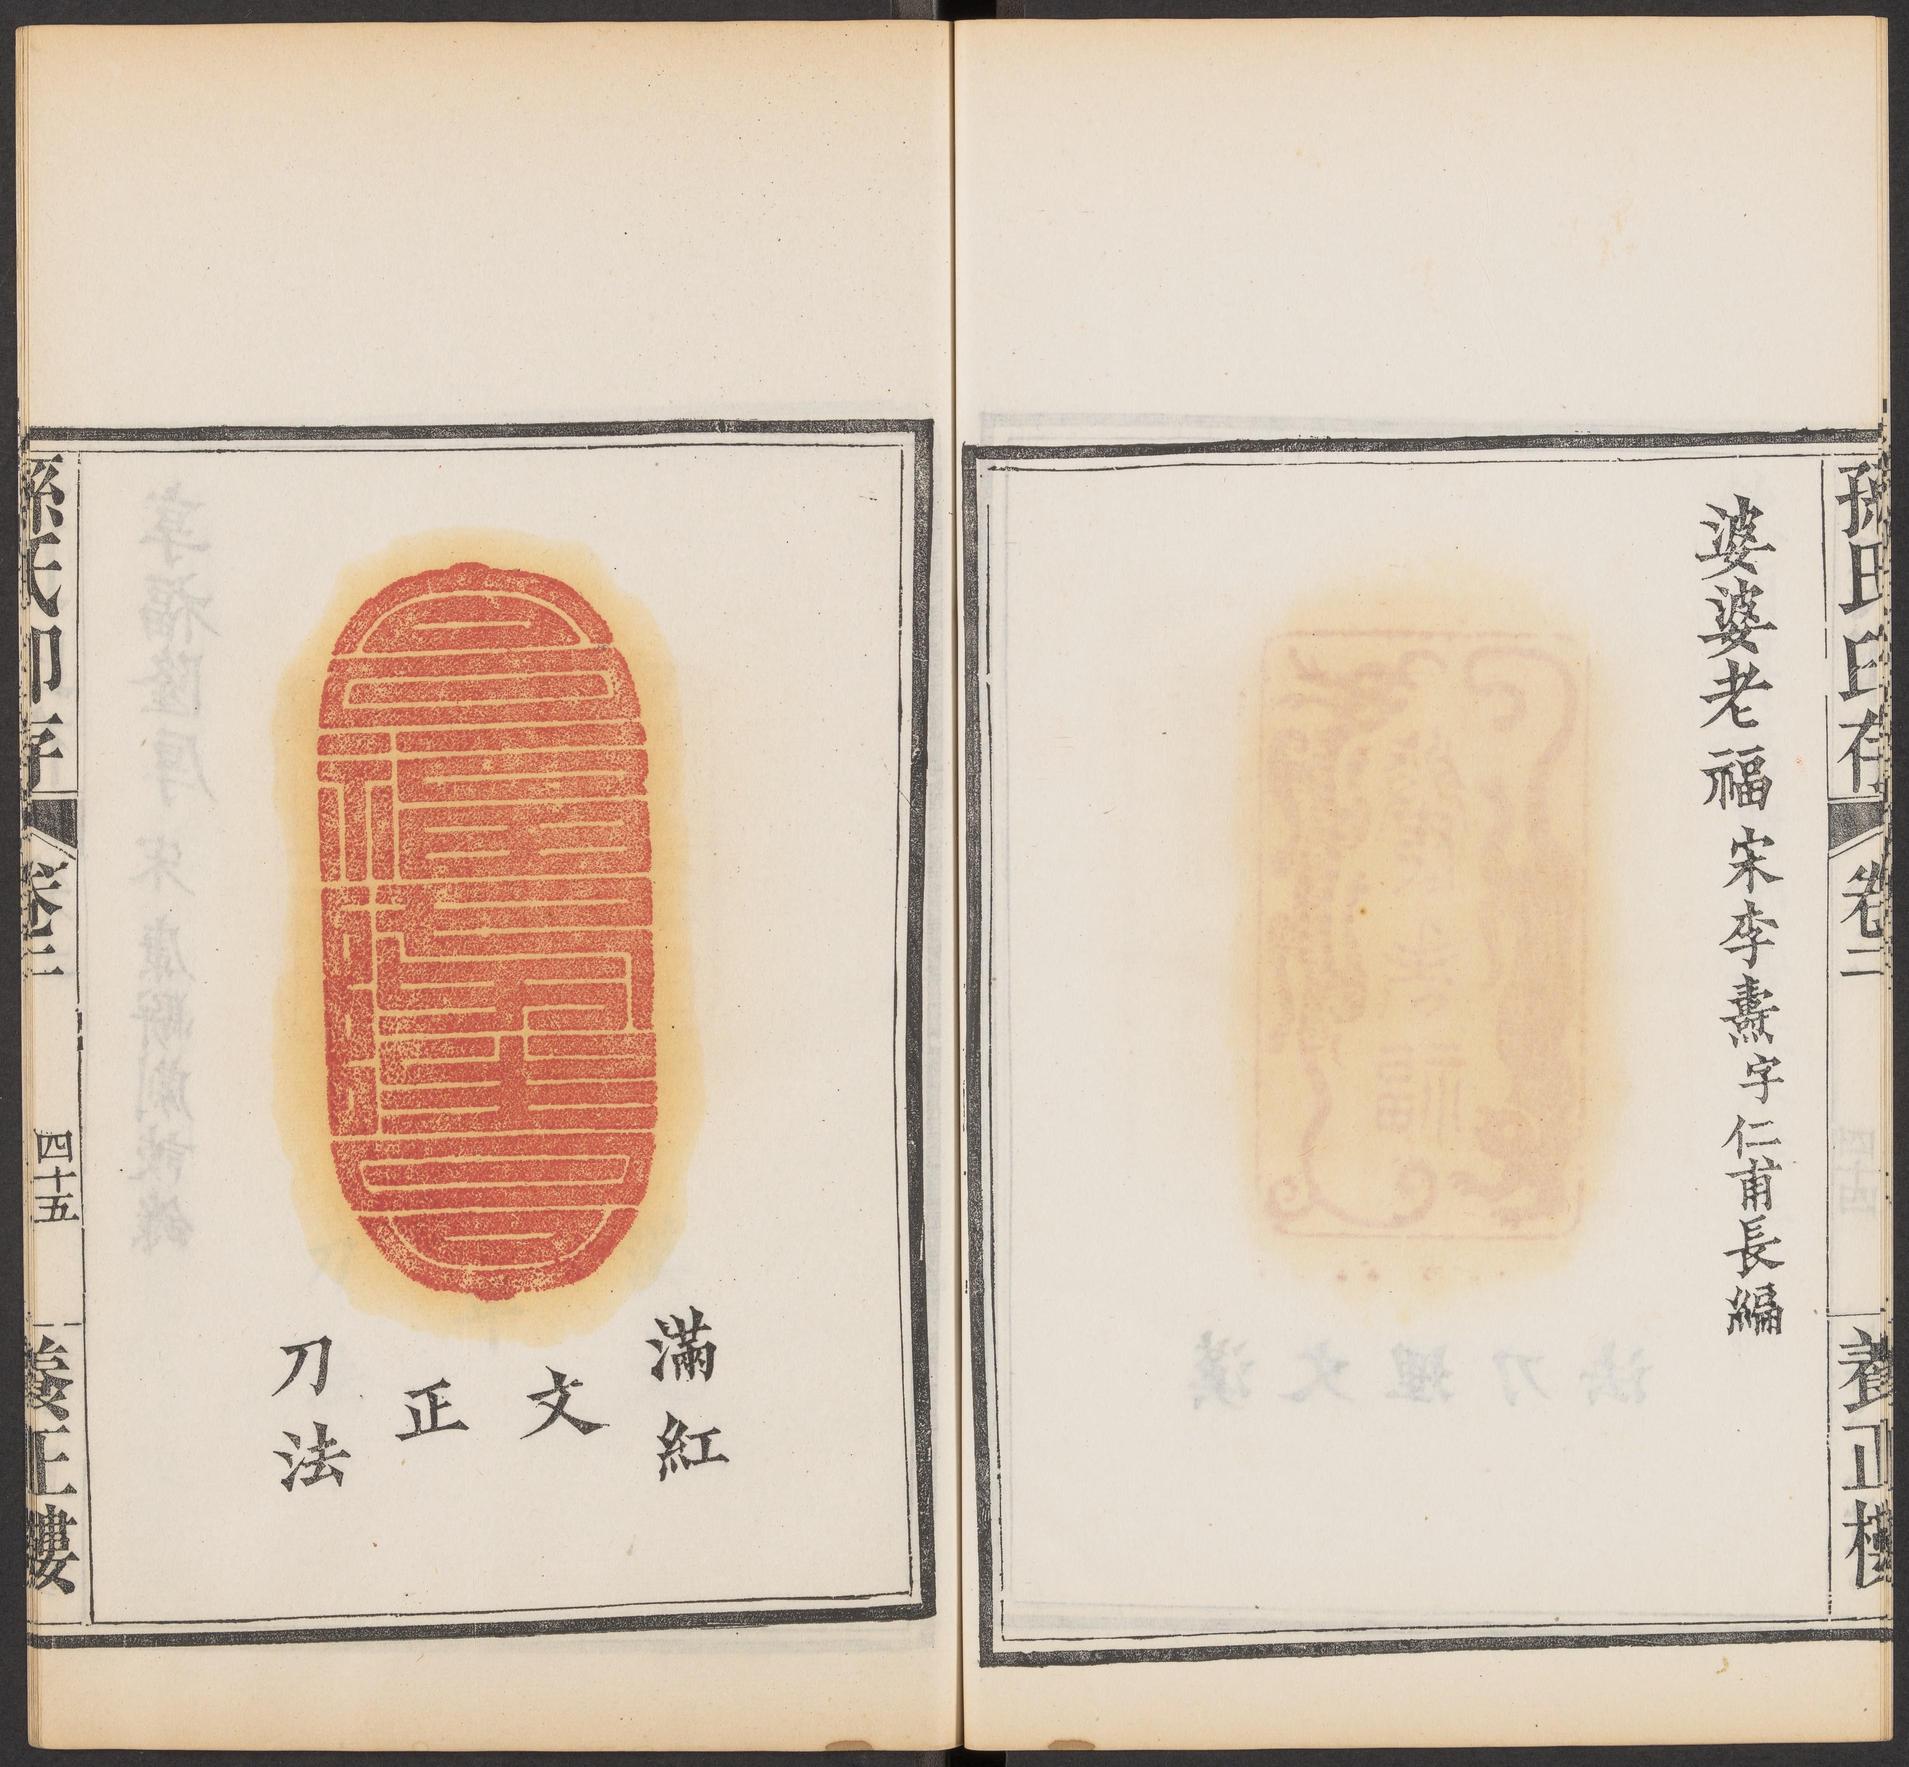 孫氏印存
卷二
養正樓
婆婆老福 宋李燾字仁甫長編
滿紅
文
正
刀法
孫氏印存
卷二
四十五
養正樓